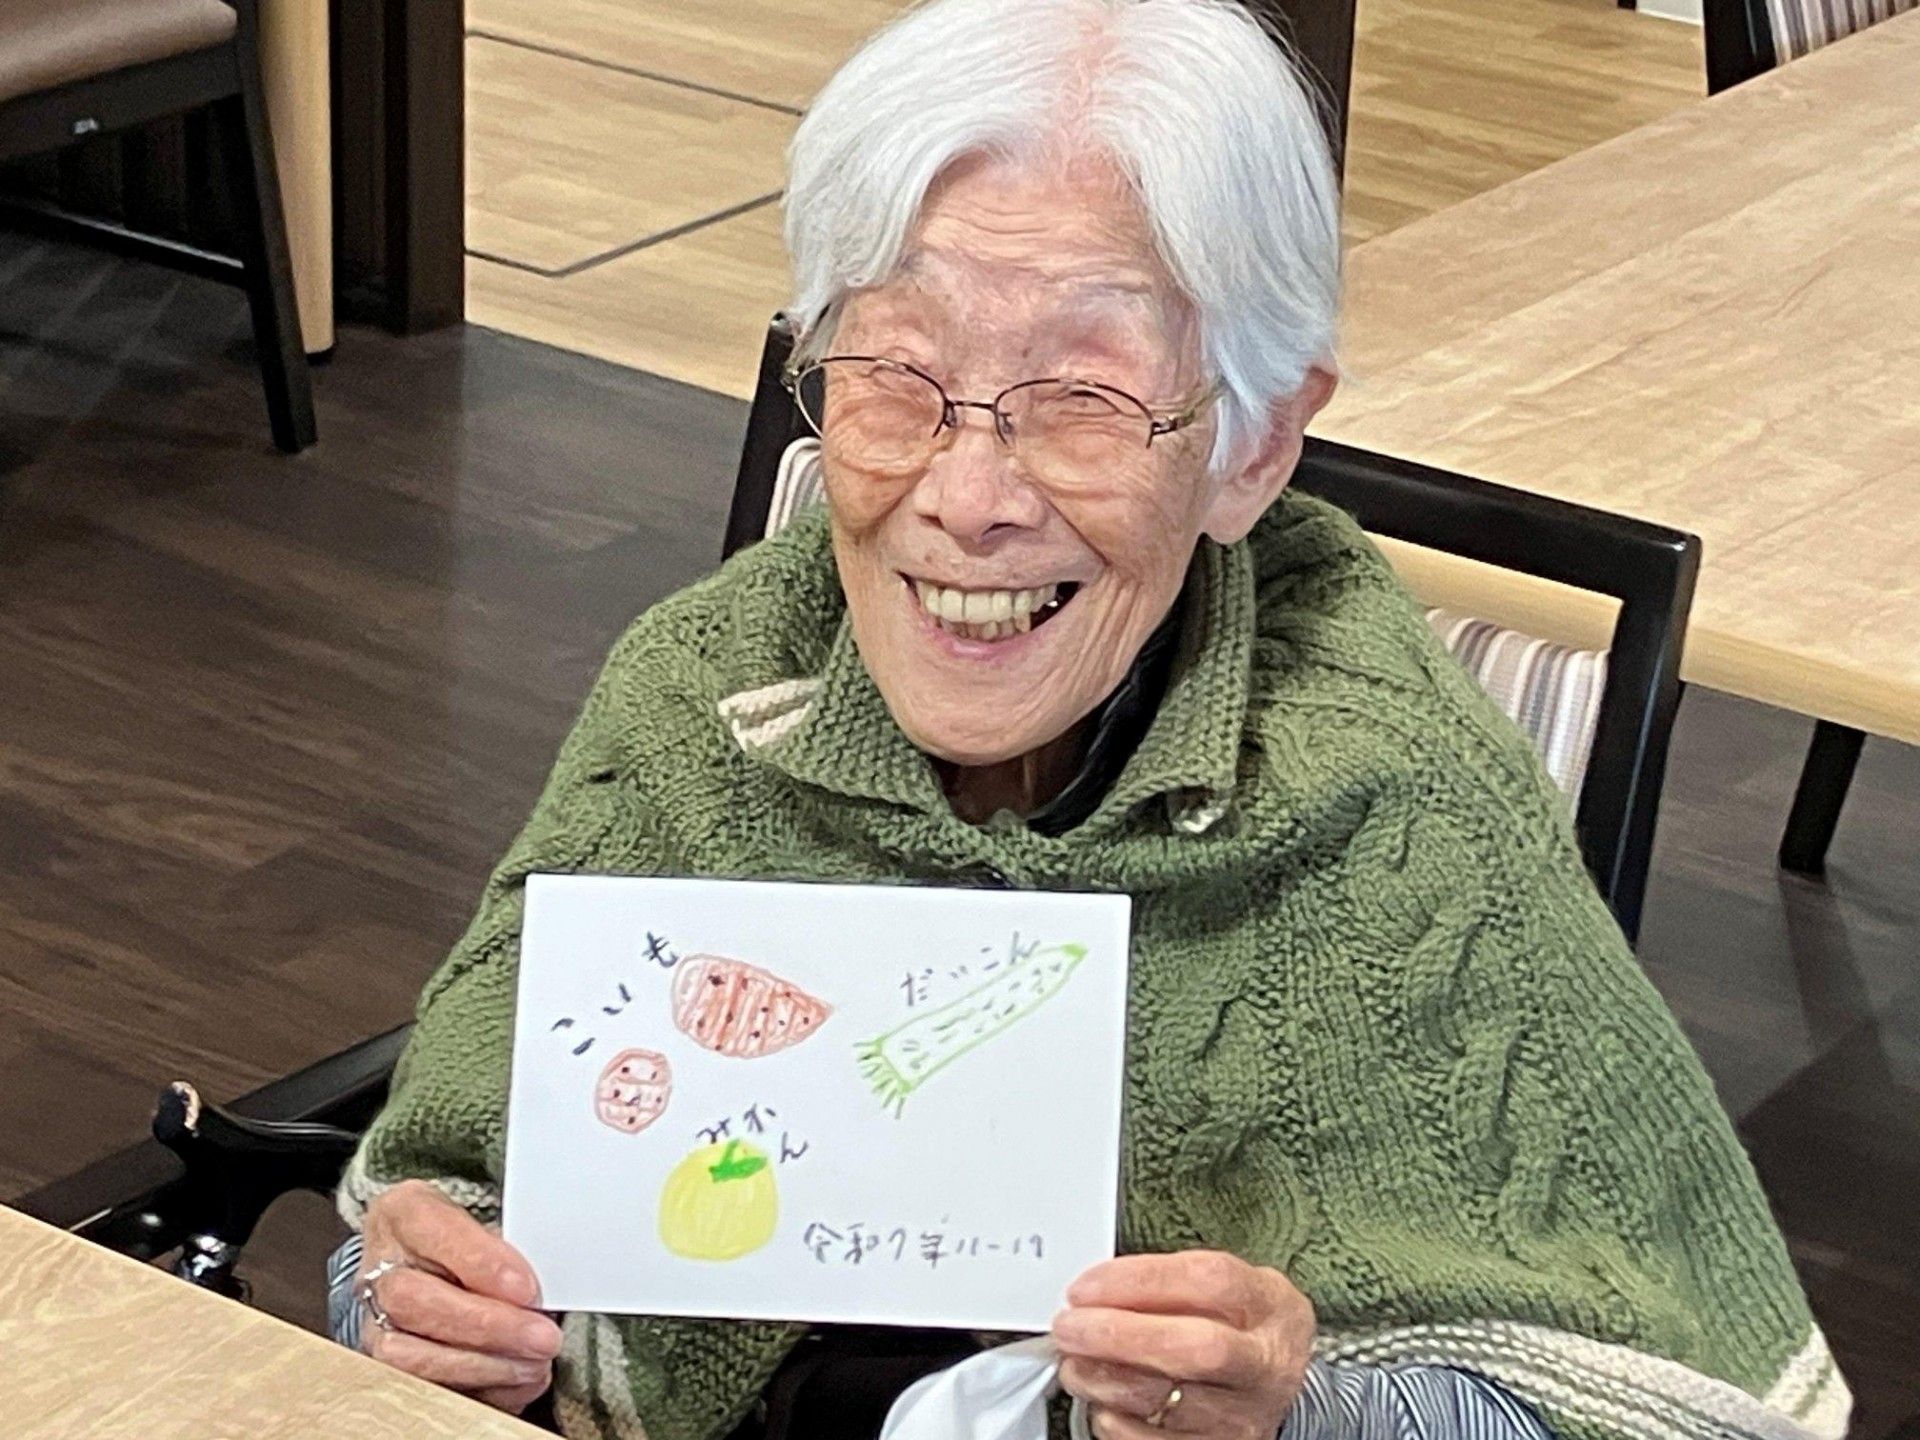 こいも
だいこん
みかん
令和7年11-19